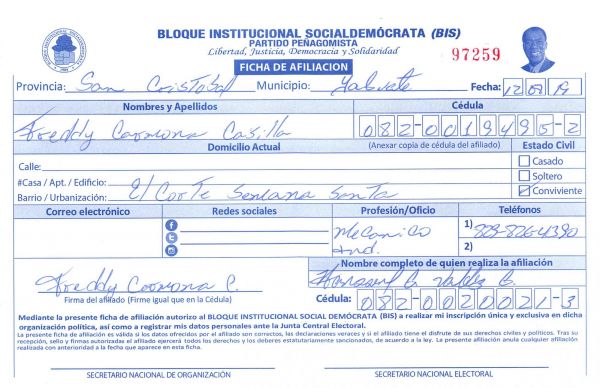 BLOQUE INSTITUCIONAL SOCIALDEMÓCRATA (BIS)
PARTIDO PEÑAGOMISTA
Libertad, Justicia, Democracia y Solidaridad
97259
FICHA DE AFILIACION
Provincia: San Cristobal Municipio: Fecha: 12 09 19
Nombres y Apellidos Cédula
Freddy Carmona Casilla 082-0019495-2
Domicilio Actual (Anexar copia de cédula del afiliado) Estado Civil
Calle: Casado
#Casa / Apt. / Edificio: Soltero
Barrio / Urbanización: El Corte Semana Santa Conviviente
Correo electrónico Redes sociales Profesión/Oficio Teléfonos
Mecanico 1) 829-826-4390
Ind. 2)
Nombre completo de quien realiza la afiliación
Freddy Carmona C.
Firma del afiliado (Firme igual que en la Cédula) Cédula: 082-0020021-3
Mediante la presente ficha de afiliación autorizo al BLOQUE INSTITUCIONAL SOCIAL DEMÓCRATA (BIS) a realizar mi inscripción única y exclusiva en dicha
organización política, así como a registrar mis datos personales ante la Junta Central Electoral.
La presente ficha de afiliación es válida si los datos ofrecidos por el afiliado son correctos, las declaraciones veraces y si el afiliado tiene el disfrute de sus derechos civiles y políticos. Tras su
recepción, sello y firmas autorizadas el afiliado ejercerá todos los derechos y los deberes estatutariamente sancionados, de acuerdo a la ley. La presente afiliación anula cualquier afiliación
realizada con anterioridad a la fecha que aparece en esta ficha.
SECRETARIO NACIONAL DE ORGANIZACIÓN SECRETARIO NACIONAL ELECTORAL